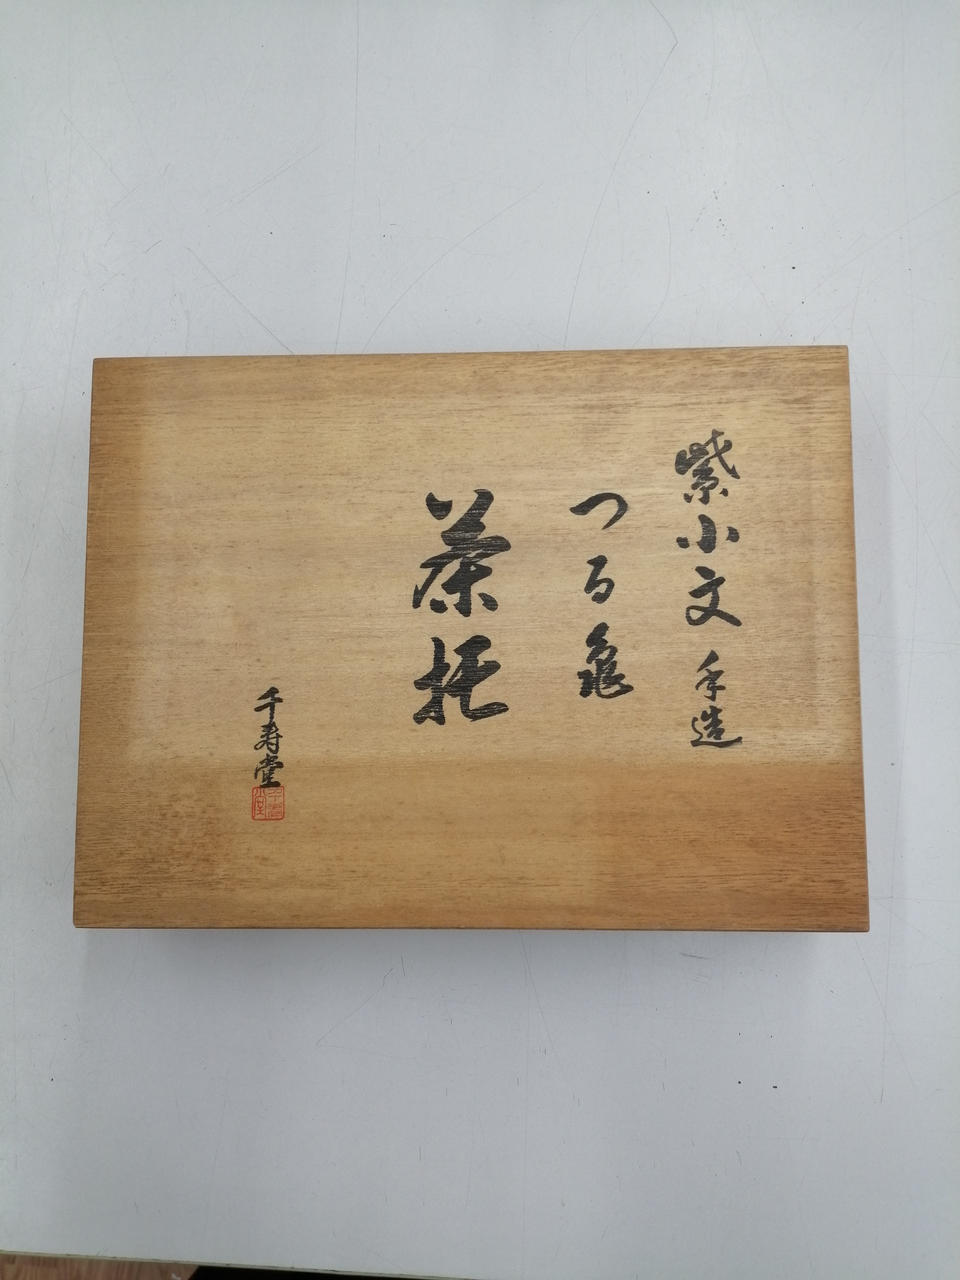 紫小文 手造
つる亀
茶托
千寿堂